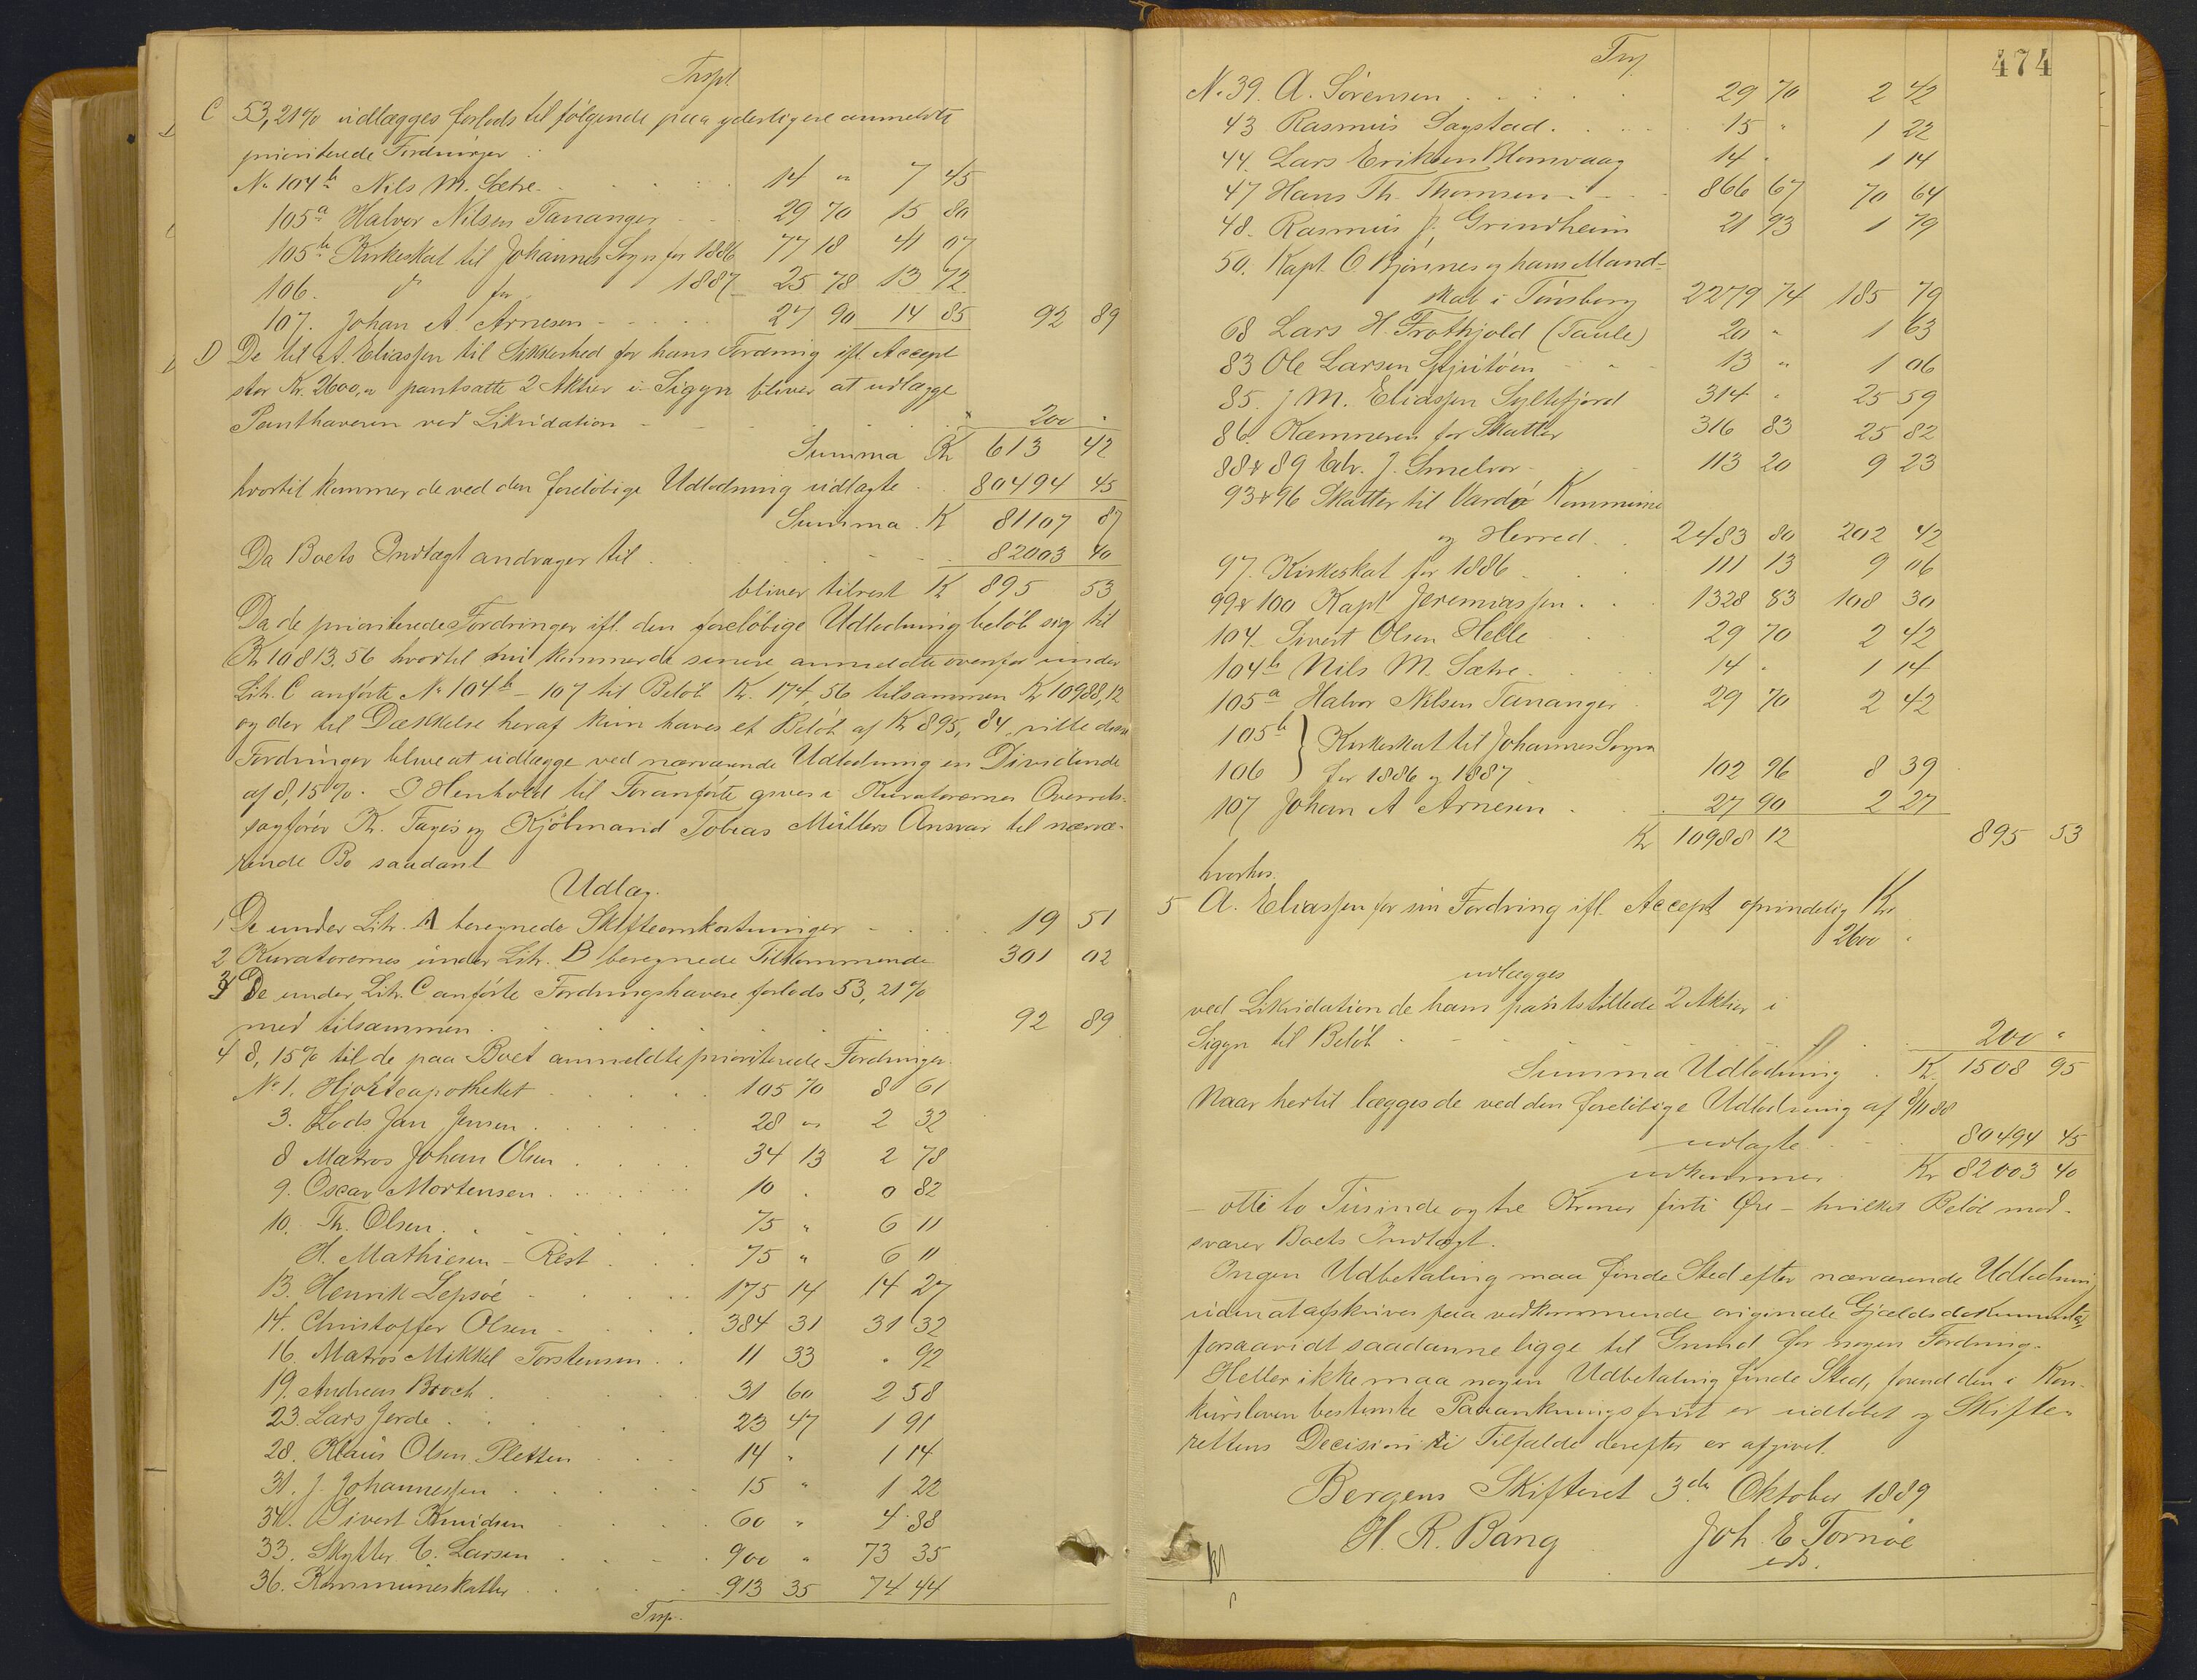 Trspt.
C 53,21% udlægges forlods til følgende paa yderligere anmeldte
prioriterede Fordringer:
No 104b Nils M. Sætre 14 " 7 45
105a Halvor Nilsen Tananger 29 70 15 80
105b Kirkeskat til Johannes Sogn for 1886 77 18 41 07
106. do for 1887 25 78 13 72
107. Johan A. Arnesen 27 90 14 85 92 89
D De til A. Eliassen til Sikkerhed for hans Fordring ifl. Accept
stor Kr. 2600," pantsatte 2 Aktier i Sigyn bliver at udlægge
Panthaveren ved Likvidation 200 "
Summa Kr 613 42
hvortil kommer de ved den foreløbige Udlodning udlagte 80494 45
Summa Kr 81107 87
Da Boets Indtægt andrager til 82003 40
bliver tilrest Kr 895 53
Da de prioriterede Fordringer ifl. den foreløbige Udlodning beløb sig til
Kr 10813.56 hvortil nu kommer de senere anmeldte ovenfor under
Litr. C anførte No 104b - 107 til Beløb Kr. 174,56 tilsammen Kr 10988,12
og der til Dækkelse heraf kun haves et Beløb af Kr 895,84, ville disse
Fordringer blive at udlægge ved nærværende Udlodning en Dividende
af 8,15%. I Henhold til Foranførte gives i Kuratorernes Overrets-
sagfører K. Fages og Kjøbmand Tobias Müllers Ansvar til nærvæ-
rende Bo saadant
Udlæg.
1 De under Litr. A beregnede Skifteomkostninger 19 51
2 Kuratorernes under Litr. B beregnede Tilkommende 301 02
3 De under Litr. C anførte Fordringshavere forlods 53,21%
med tilsammen 92 89
4 8,15% til de paa Boet anmeldte prioriterede Fordringer.
No 1. Hjorteapotheket 105 70 8 61
3. Lods Jan Jensen 28 " 2 32
8 Matros Johan Olsen 34 13 2 78
9. Oscar Mortensen 10 . 0 82
10. Th. Olsen 75 " 6 11
H. Mathiesen - Rest 75 " 6 11
13. Henrik Lepsöe 175 14 14 27
14. Christoffer Olsen 384 31 31 32
16. Matros Mikkel Torstensen 11 33 " 92
19. Andreas Broch 31 60 2 58
23. Lars Jerde 23 47 1 91
28. Klaus Olsen Pletten 14 " 1 14
31. J. Johannessen 15 " 1 22
34. Sivert Knudsen 60 " 4 88
33. Skytter C. Larsen 900 " 73 35
36. Kommuneskatter 913 35 74 44
Trsp.
474
Trsp.
No 39. A. Sörensen 29 70 2 42
43 Rasmus Sagstad 15 " 1 22
44. Lars Eriksen Blomvaag 14 " 1 14
47 Hans Th. Thomsen 866 67 70 64
48. Rasmus J. Grindheim 21 93 1 79
50. Kapt. O. Bjönnes og hans Mand-
skab i Tönsberg 2279 74 185 79
68 Lars H. Trothjold (Taule) 20 " 1 63
83 Ole Larsen 13 " 1 06
85. J. M. Eliassen Syltefjord 314 " 25 59
86. Kæmneren for Skatter 316 83 25 82
88 & 89 Edv. J. Smelror 113 20 9 23
93 & 96 Skatter til Vardø Kommune
og Herred 2483 80 202 42
97. Kirkeskat for 1886 111 13 9 06
99 & 100 Kapt Jeremiassen 1328 83 108 30
104. Sivert Olsen Helle 29 70 2 42
104b Nils M. Sætre 14 " 1 14
105a Halvor Nilsen Tananger 29 70 2 42
105b } Kirkeskat til Johannes Sogn
106 } for 1886 og 1887 102 96 8 39
107 Johan A Arnesen 27 90 2 27
Kr 10988 12 895 53
hvorhos.
5 A. Eliassen for sin Fordring ifl. Accept oprindelig Kr
2600 "
udlægges
ved Likvidation de ham pantstillede 2 Aktier i
Sigyn til Beløb 200 "
Summa Udlodning Kr. 1508 95
Naar hertil lægges de ved den foreløbige Udlodning af 9/11 88
udlagte 80494 45
udkommer Kr 82003 40
- otti to Tusinde og tre Kroner firti Øre - hvilket Beløb mod-
svarer Boets Indtægt.
Ingen Udbetaling maa finde Sted efter nærværende Udlodning
uden at afskrives paa vedkommende originale Gjældsdokumenter,
forsaavidt saadanne ligge til Grund for nogen Fordring.
Heller ikke maa nogen Udbetaling finde Sted, forend den i Kon-
kursloven bestemte Paaankningsfrist er udløbet og Skifte-
rettens Decision i Tilfælde derefter er afgivet.
Bergens Skifteret 3die Oktober 1889
H. R. Bang Joh. E Tornöe